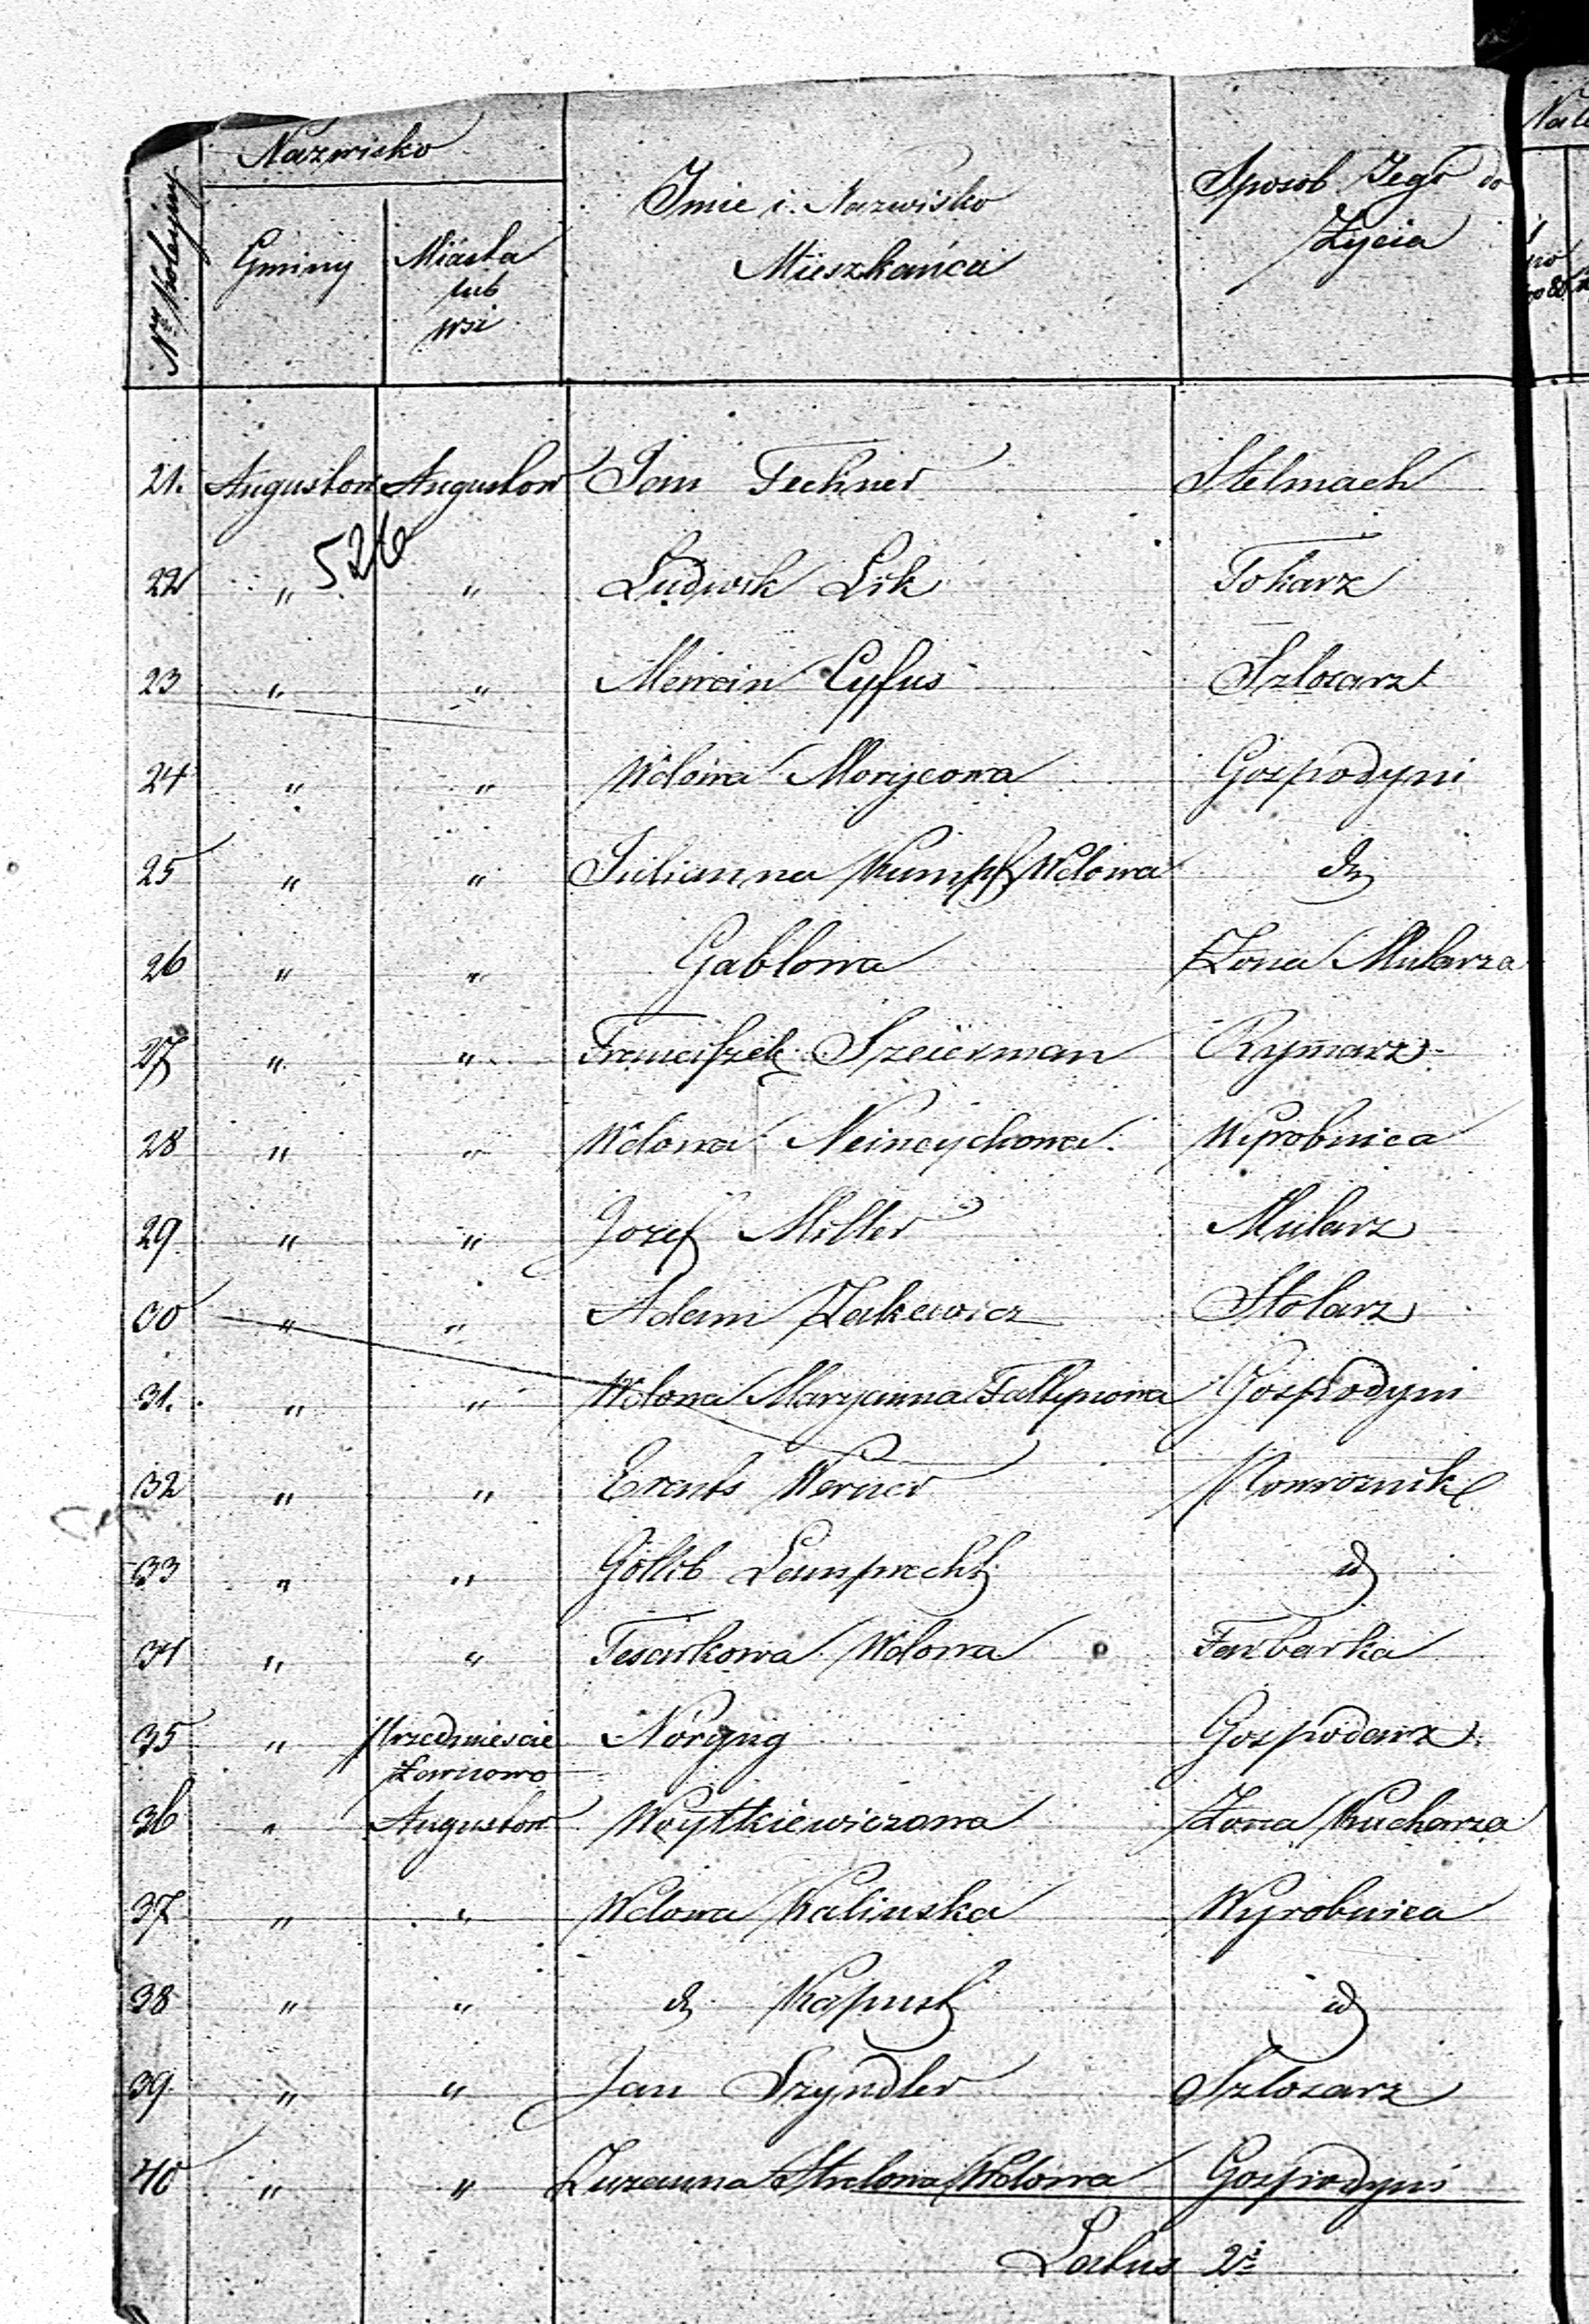 Nazwisko
Nro Koleyny
Gminy
Miasta
lub
wsi
Imie i Nazwisko
Mieszkańca
Sposob Jego do
Życia
21. Augustow Augustow Jan Fechner Stelmach
526
22 " " Ludwik Lik Tokarz
23 " " Marcin Cyfus Szlosarz
24 " " Wdowa Morycowa Gospodyni
25 " " Julianna Kumpf Wdowa dto
26 " " Gablowa Żona Mularza
27 " " Franciszek Szeierman Rymarz
28 " " Wdowa Neincychowa Wyrobnica
29 " " Jozef Miller Mularz
30 " " Adam Żakewicz Stolarz
31. " " Wdowa Maryanna Faltynowa Gospodyni
32 " " Ernts Werner Powroznik
33 " " Gottlib Lamprecht id
34 " " Tesarkowa Wdowa Farbarka
35 " Przedmiescie Noryng Gospodarz
Żarnowo
36 " Augustow Woytkiewiczowa Żona Kucharza
37 " " Wdowa Kalinska Wyrobnica
38 " " dto Kapust id
39 " " Jan Szyndler Szlosarz
40 " " Zuzanna Strelowa Wdowa Gospodyni
Latus 2